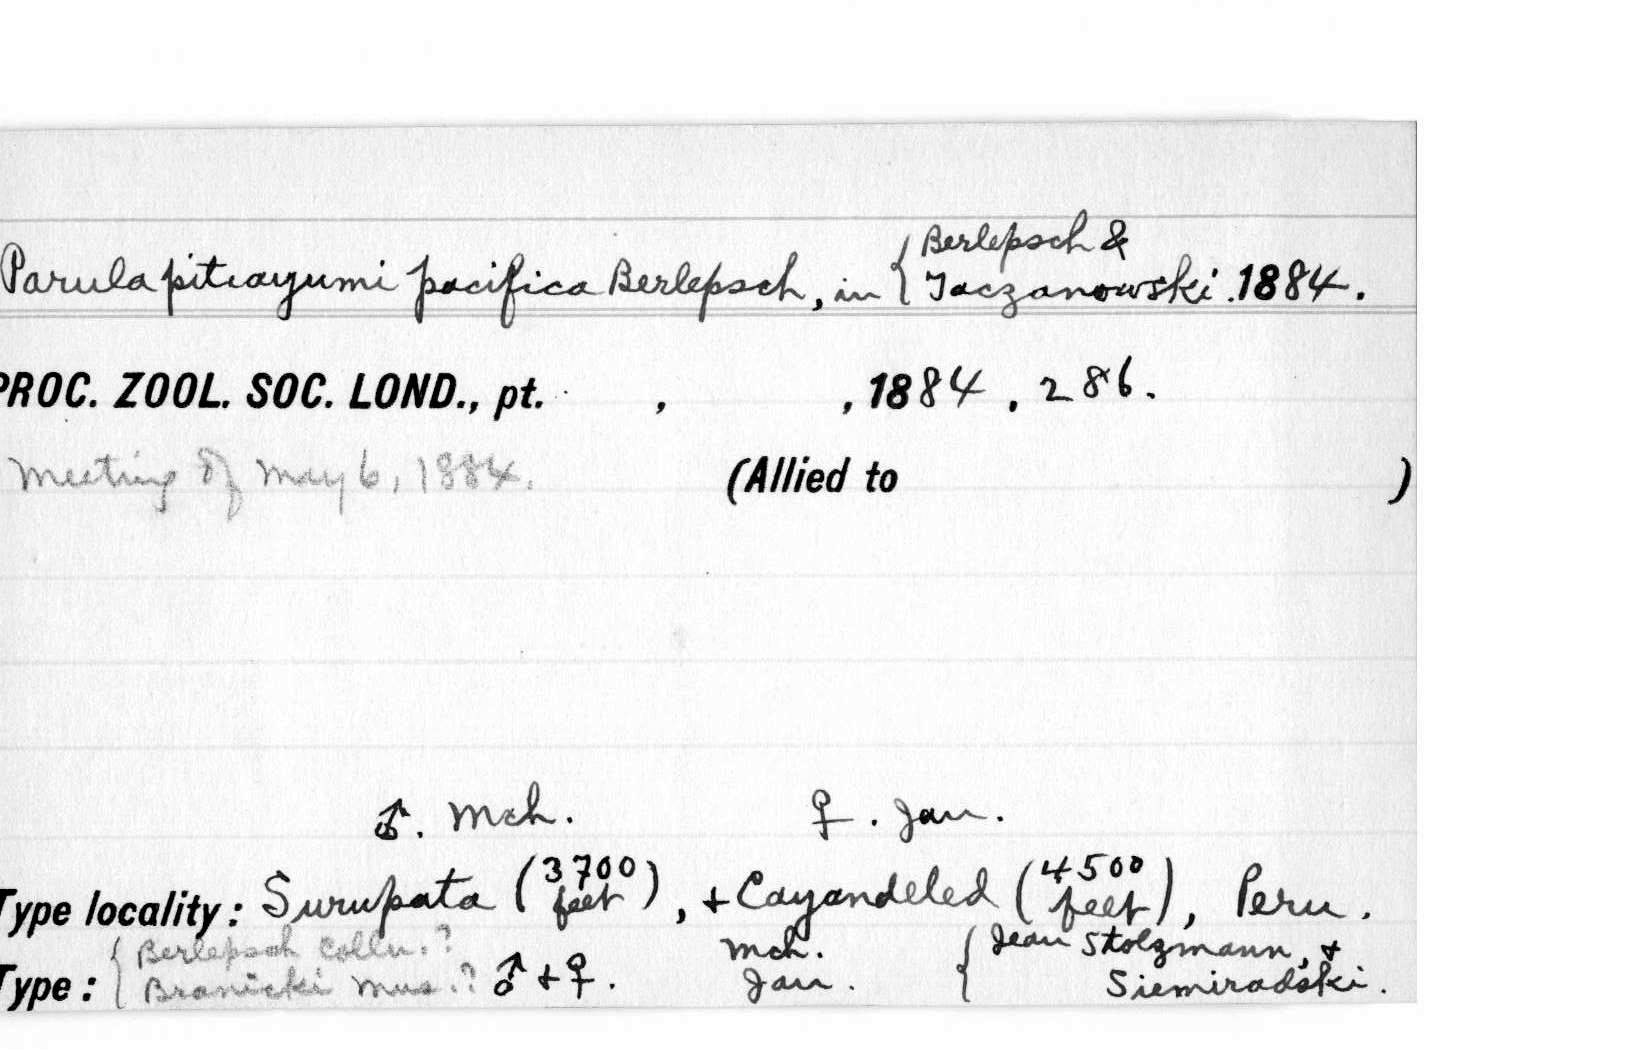 Parula pitiayumi pacifica Berlepsch, in { Berlepsch & Taczanowski. 1884.
PROC. ZOOL. SOC. LOND., pt. , , 1884, 286.
Meeting of May 6, 1884. (Allied to )
♂. Mch. ♀. Jan.
Type locality: Surupata (3700 feet), + Cayandeled (4500 feet), Peru.
Type: { Berlepsch Colln.? Branicki Mus.? ♂ + ♀. Mch. Jan. { Jean Stolzmann, + Siemiradski.